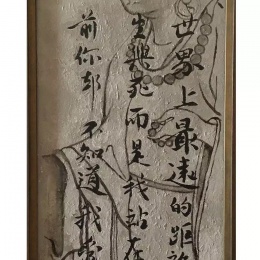 世界上最遠的距離
生與死而是我站在
前你卻不知道我愛